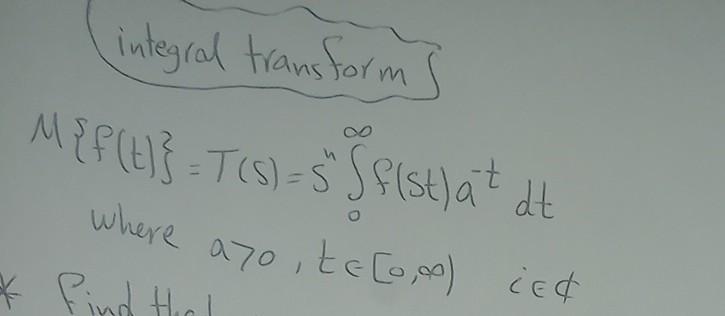 integral transform
M{f(t)} = T(s) = sⁿ ∫₀^∞ f(st) a⁻ᵗ dt
where a>0, t∈[0,∞) i∈¢
* Find